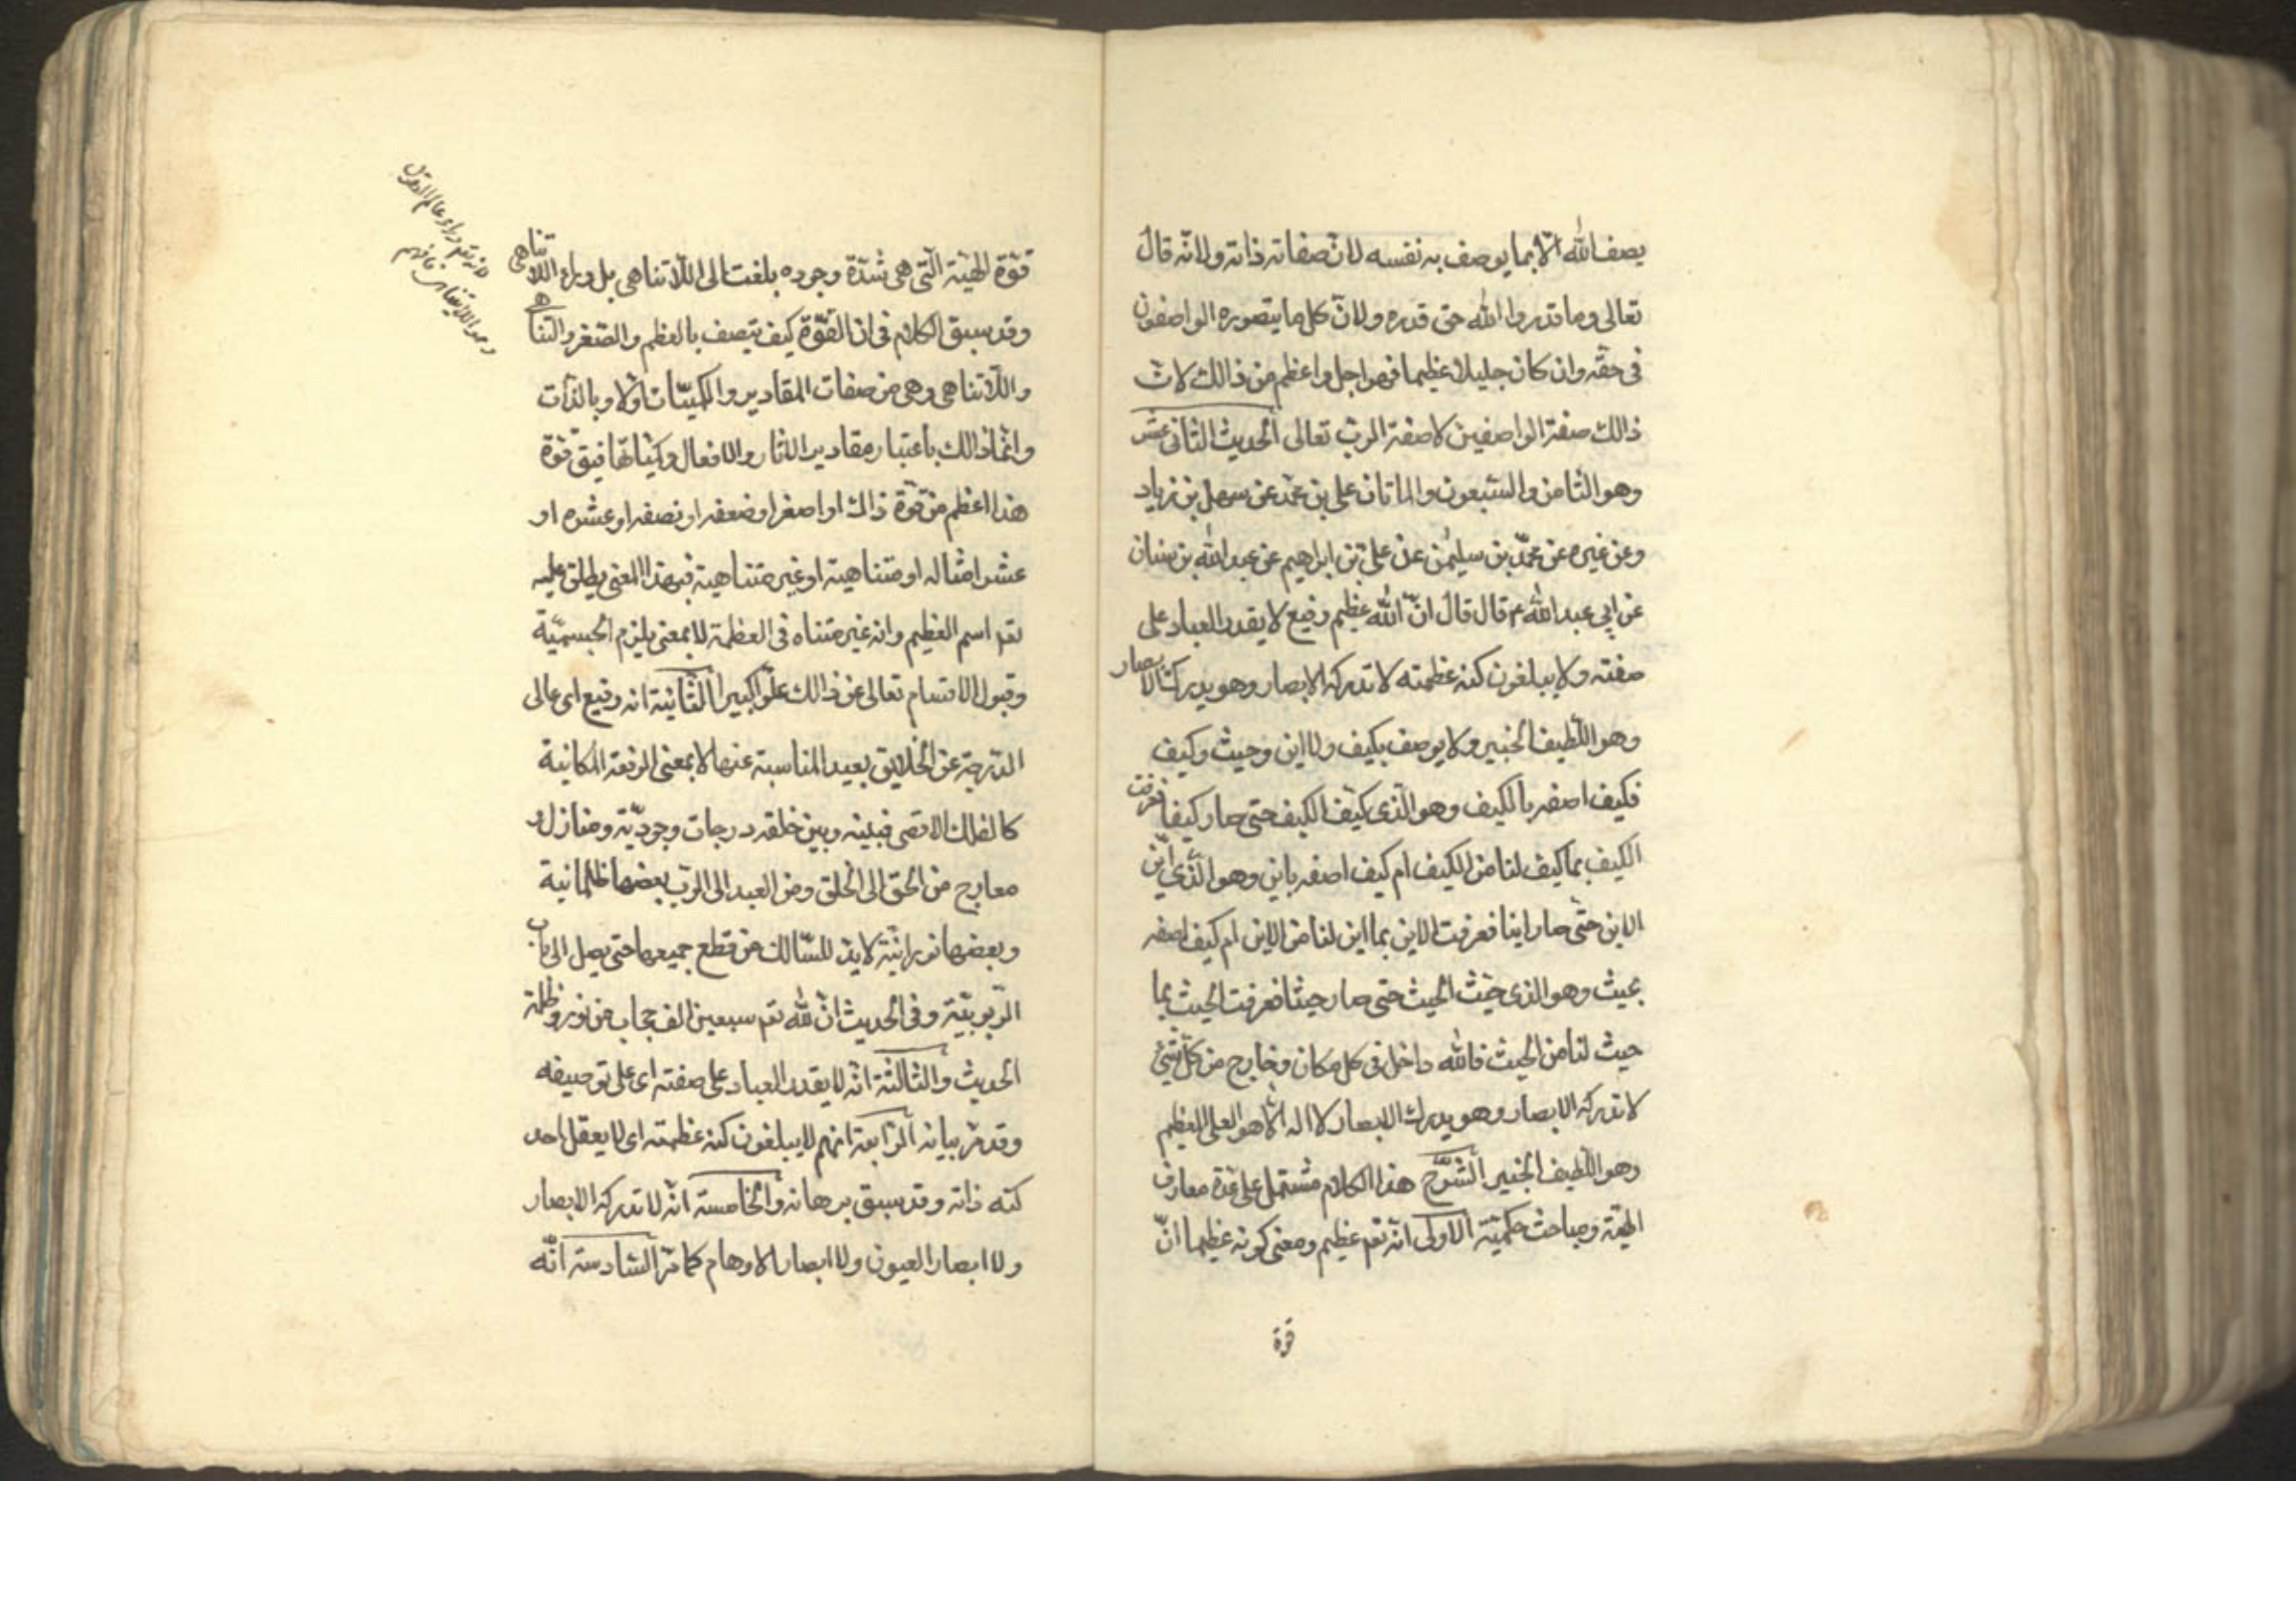 يصف الله الا بما يوصف به نفسه لان صفاته ذاته ولانه قال
تعالى وما قدروا الله حق قدره ولان كل ما يتصوره الواصفون
فى حقه وان كان جليلا عظيما فهو اجل واعظم من ذالك لان
ذالك صفة الواصفين لا صفة الرب تعالى الحديث الثانى عشر
وهو الثامن والسبعون والماتان على بن محمد عن سهل بن زياد
وعن غيره عن محمد بن سليمن عن على بن ابراهيم عن عبد الله بن سنان
عن ابى عبد الله ع قال قال ان الله عظيم رفيع لا يقدر العباد على
صفته ولا يبلغون كنه عظمته لا تدركه الابصار وهو يدرك الابصار
وهو اللطيف الخبير ولا يوصف بكيف ولا اين وحيث وكيف
فكيف اصفه بالكيف وهو الذى كيف الكيف حتى صار كيفا فعرفت
الكيف بما كيف لنا من الكيف ام كيف اصفه باين وهو الذى اين
الاين حتى صار اينا فعرفت الاين بما اين لنا من الاين ام كيف اصفه
بحيث وهو الذى حيث الحيث حتى صار حيثا فعرفت الحيث بما
حيث لنا من الحيث فالله داخل فى كل مكان وخارج من كل شئ
لا تدركه الابصار وهو يدرك الابصار لا اله الا هو العلى العظيم
وهو اللطيف الخبير الشرح هذا الكلام مشتمل على عدة معارف
الهية ومباحث حكمية الاولى انه تعم عظيم ومعنى كونه عظيما ان
قوة
قوة الهية التى هى شدة وجوده بلغت الى اللاتناهى بل وراء اللاتناهى
وقد سبق الكلام فى ان القوة كيف يتصف بالعظم والصغر والتناهى
واللاتناهى وهى من صفات المقادير والكميات اولا وبالذات
وانما ذالك باعتبار مقادير الاثار والافعال وكمياتها فيق قوة
هذا اعظم من قوة ذاك او اصغر او ضعفه او نصفه او عشره او
عشر امثاله او متناهية او غير متناهية فبهذا المعنى يطلق عليه
تعم اسم العظيم وانه غير متناه فى العظمة لا بمعنى يلزم الجسمية
وقبول الاقسام تعالى عن ذالك علوا كبيرا الثانية انه رفيع اى عالى
الدرجة عن الخلايق بعيد المناسبة عنها لا بمعنى الرفعة المكانية
كالفلك الاقصى فبينه وبين خلقه درجات وجودية ومنازل و
معارج من الحق الى الخلق ومن العبد الى الرب بعضها ظلمانية
وبعضها نورانية لا بد للسالك من قطع جميعها حتى يصل الى باب
الربوبية وفى الحديث ان لله تعم سبعين الف حجاب من نور وظلمة
الحديث والثالثة انه لا يقدر العباد على صفته اى على توصيفه
وقد مر بيانه الرابعة انهم لا يبلغون كنه عظمته اى لا يعقل احد
كنه ذاته وقد سبق برهانه والخامسة انه لا تدركه الابصار
ولا ابصار العيون ولا ابصار الاوهام كما مر السادسة انه